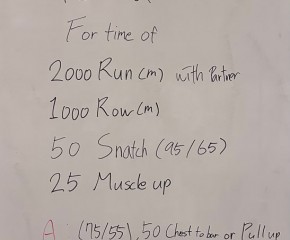 For time of
2000 Run (m) with Partner
1000 Row (m)
50 Snatch (95/65)
25 Muscle up
A: (75/55), 50 Chest to bar or Pull up